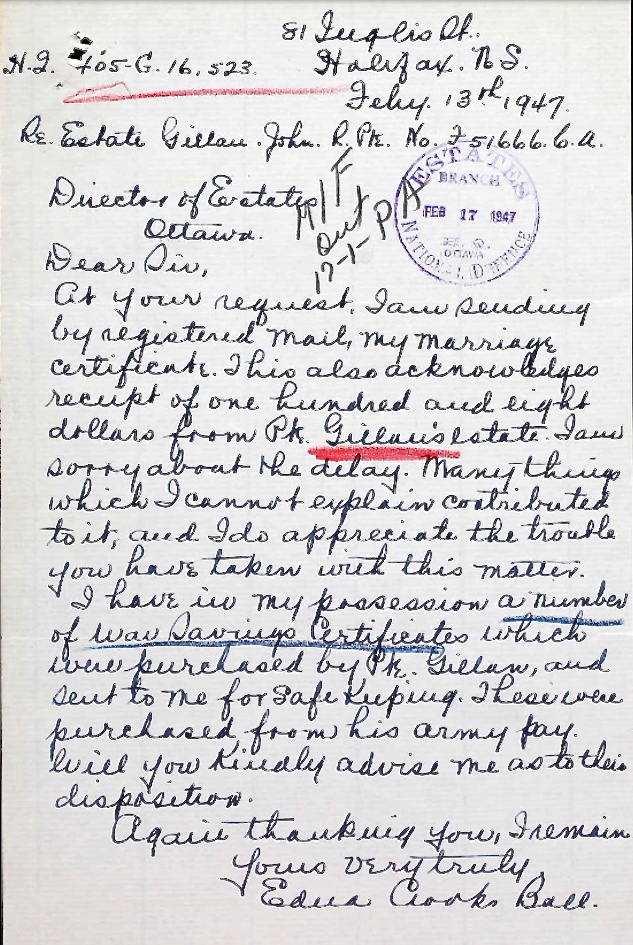 81 Inglis St.
H.Q. 405-G. 16,523. Halifax. N.S.
Feby. 13th 1947.
Re. Estate Gillan. John. R. Pte. No. F51666. C.A.
Director of Estates
Ottawa.
M/F
Out
17-1-
P A
ESTATES
BRANCH
FEB 17 1947
OTTAWA
NATIONAL DEFENCE
Dear Sir,
At your request, I am sending
by registered mail, my marriage
certificate. This also acknowledges
receipt of one hundred and eight
dollars from Pte. Gillan's estate. I am
sorry about the delay. Many things
which I cannot explain contributed
to it, and I do appreciate the trouble
you have taken with this matter.
I have in my possession a number
of War Savings Certificates which
were purchased by Pte. Gillan, and
sent to me for Safe Keeping. These were
purchased from his army pay.
Will you Kindly advise me as to their
disposition.
Again thanking you, I remain
yours very truly,
Edna Crooks Ball.